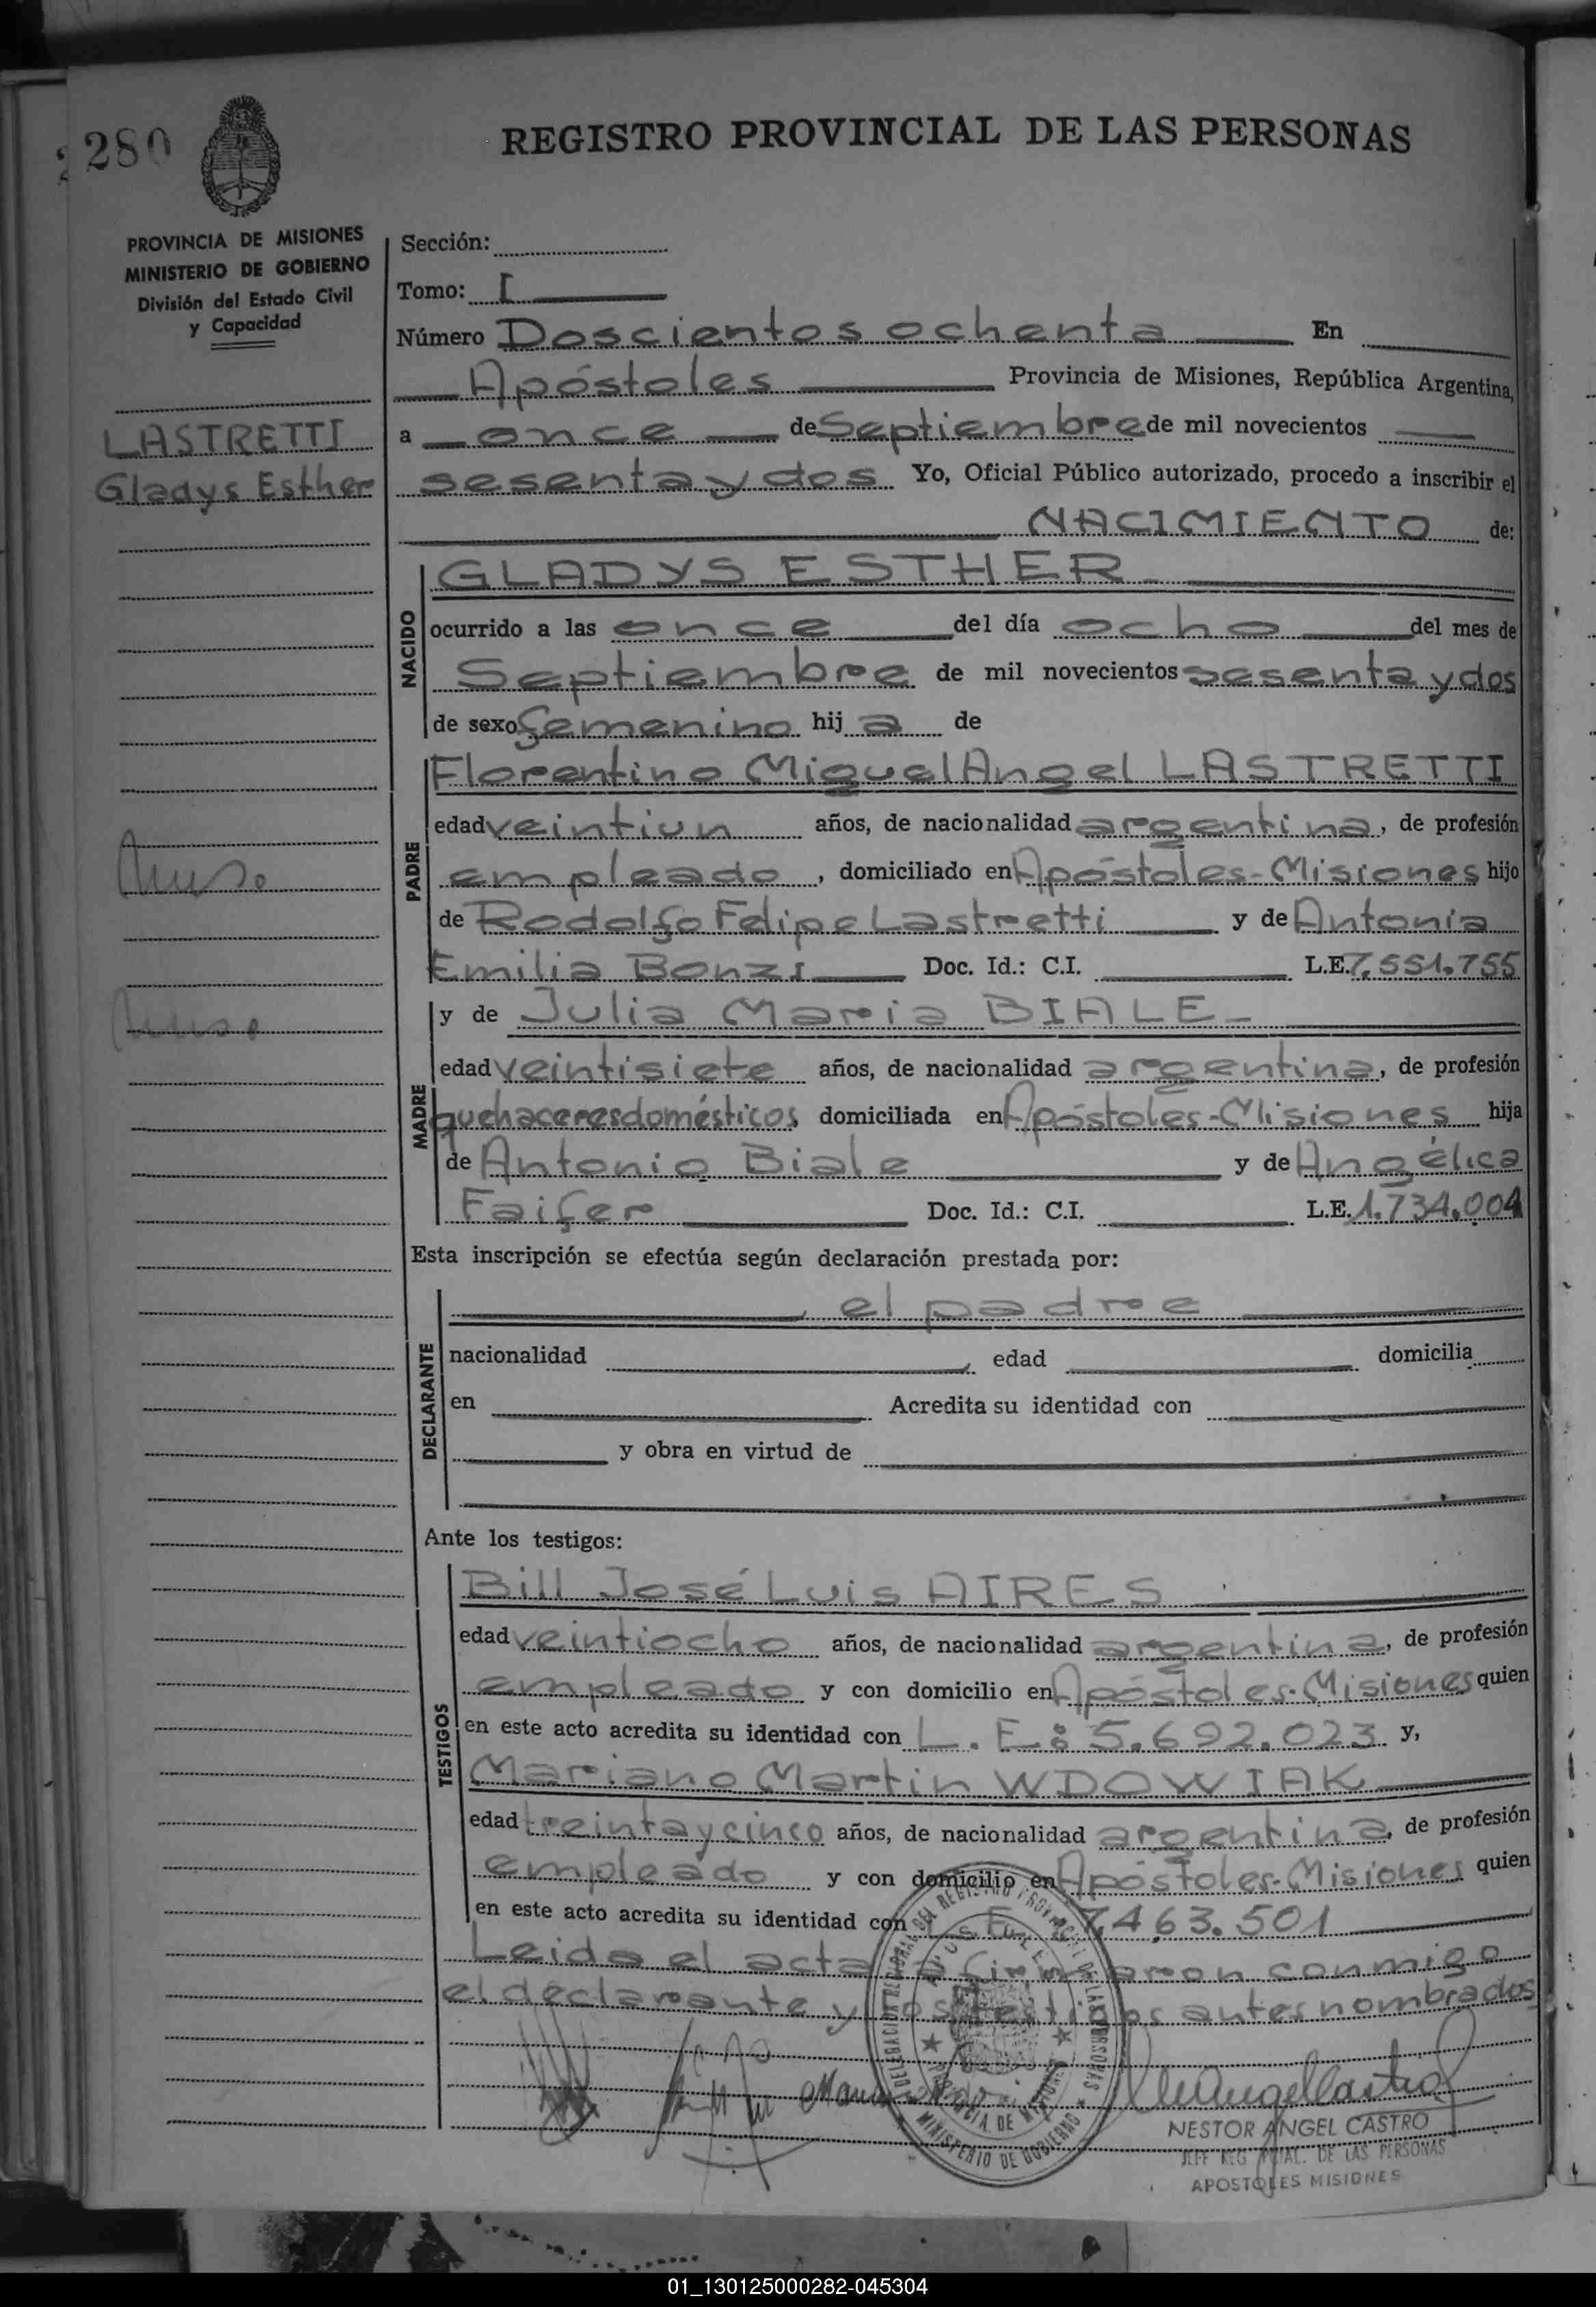 280
REGISTRO PROVINCIAL DE LAS PERSONAS
PROVINCIA DE MISIONES
MINISTERIO DE GOBIERNO
División del Estado Civil
y Capacidad
LASTRETTI
Gladys Esther
Sección:
Tomo: I
Número Doscientos ochenta En
Apóstoles Provincia de Misiones, República Argentina,
a once de Septiembre de mil novecientos
sesenta y dos Yo, Oficial Público autorizado, procedo a inscribir el
NACIMIENTO de:
NACIDO
GLADYS ESTHER
ocurrido a las once del día ocho del mes de
Septiembre de mil novecientos sesenta y dos
de sexo femenino hij a de
PADRE
Florentino Miguel Angel LASTRETTI
edad veintiun años, de nacionalidad argentina, de profesión
empleado, domiciliado en Apóstoles-Misiones hijo
de Rodolfo Felipe Lastretti y de Antonia
Emilia Bonzi Doc. Id.: C.I. L.E. 7.551.755
MADRE
y de Julia Maria BIALE
edad veintisiete años, de nacionalidad argentina, de profesión
quehaceres domésticos domiciliada en Apóstoles-Misiones hija
de Antonio Biale y de Angélica
Faifer Doc. Id.: C.I. L.E. 1.734.004
Esta inscripción se efectúa según declaración prestada por:
DECLARANTE
el padre
nacionalidad edad domicilia
en Acredita su identidad con
y obra en virtud de
Ante los testigos:
TESTIGOS
Bill José Luis AIRES
edad veintiocho años, de nacionalidad argentina, de profesión
empleado y con domicilio en Apóstoles-Misiones quien
en este acto acredita su identidad con L. E: 5.692.023 y,
Mariano Martin WDOWIAK
edad treinta y cinco años, de nacionalidad argentina, de profesión
empleado y con domicilio en Apóstoles-Misiones quien
en este acto acredita su identidad con 7.463.501
Leida el acta firmaron conmigo
el declarante y los testigos antes nombrados
NESTOR ANGEL CASTRO
JEFE REG. PCIAL. DE LAS PERSONAS
APOSTOLES MISIONES
MINISTERIO DE GOBIERNO
01_130125000282-045304